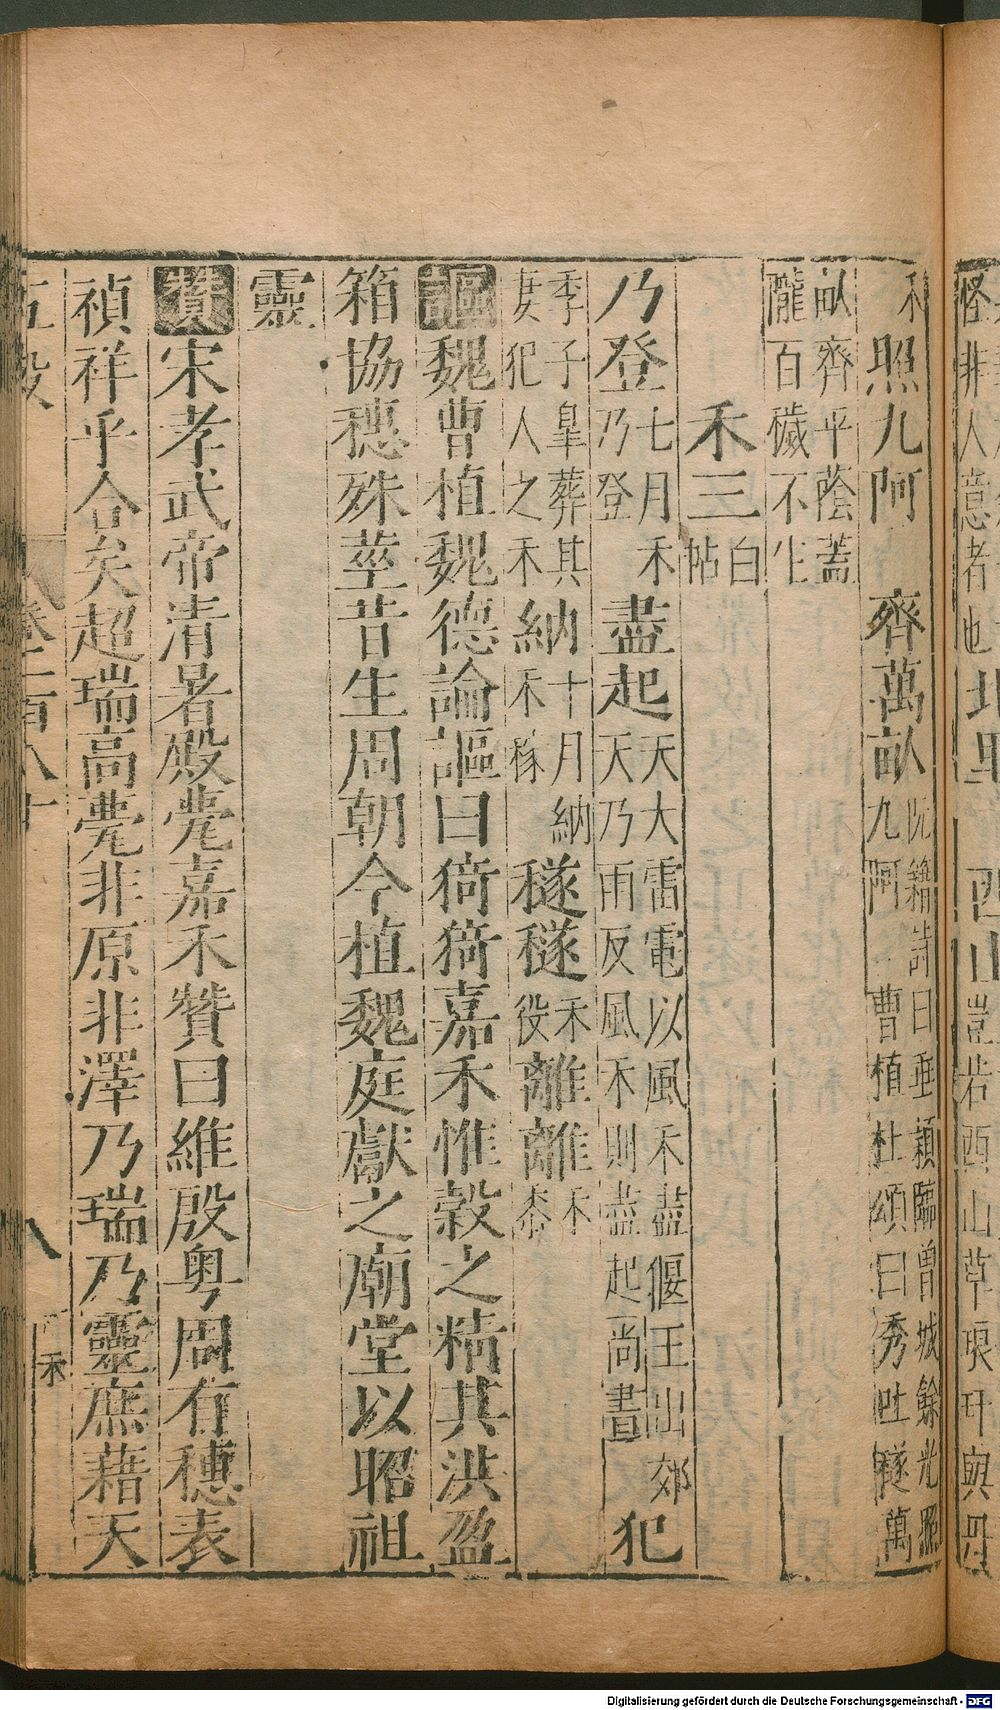 怪非人意者也 北里 西山 豈若西山草琅玕與丹
禾 照九阿 齊萬畝 阮籍詩曰垂穎臨曾城餘光照九阿 曹植杜頌曰秀吐穟萬
畝齊平蔭蓋隴百穢不生
禾三 白帖
乃登 七月禾乃登 盡起 天大雷電以風禾盡偃王出郊天乃雨反風禾則盡起尚書 犯
季子皐葬其妻犯人之禾 納 十月納禾稼 穟穟 禾役 離離 禾黍
謳 魏曹植魏德論謳曰猗猗嘉禾惟穀之精其洪盈
箱協穗殊莖昔生周朝今植魏庭獻之廟堂以昭祖
靈
贊 宋孝武帝清暑殿甍嘉禾贊曰維殷粤周有穗表
禎祥乎合矣超瑞高甍非原非澤乃瑞乃靈庶藉天
五穀 卷二百八十 八 禾
Digitalisierung gefördert durch die Deutsche Forschungsgemeinschaft - DFG